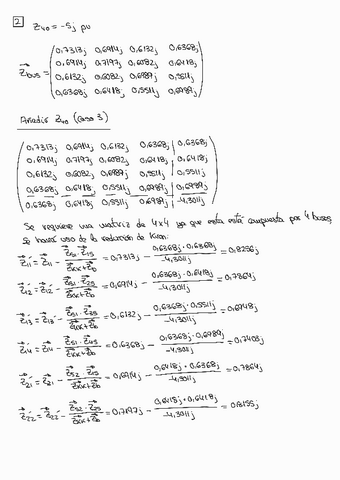 2 Z40 = -5j pu
Zbus = (0,7313j 0,6914j 0,6132j 0,6368j
0,6914j 0,7197j 0,6082j 0,6418j
0,6132j 0,6082j 0,6989j 0,5511j
0,6368j 0,6418j 0,5511j 0,6989j)
Añadir Z40 (caso 3)
(0,7313j 0,6914j 0,6132j 0,6368j | 0,6368j
0,6914j 0,7197j 0,6082j 0,6418j | 0,6418j
0,6132j 0,6082j 0,6989j 0,5511j | 0,5511j
0,6368j 0,6418j 0,5511j 0,6989j | 0,6989j
0,6368j 0,6418j 0,5511j 0,6989j | -4,3011j)
Se requiere una matriz de 4x4 ya que esta está compuesta por 4 buses
Se hará uso de la reducción de Kron:
Z11' = Z11 - Z51·Z15/(Zkk+Zb) = 0,7313j - 0,6368j·0,6368j/-4,3011j = 0,8256j
Z12' = Z12 - Z51·Z25/(Zkk+Zb) = 0,6914j - 0,6368j·0,6418j/-4,3011j = 0,7864j
Z13' = Z13 - Z51·Z35/(Zkk+Zb) = 0,6132j - 0,6368j·0,5511j/-4,3011j = 0,6948j
Z14' = Z14 - Z51·Z45/(Zkk+Zb) = 0,6368j - 0,6368j·0,6989j/-4,3011j = 0,7403j
Z21' = Z21 - Z52·Z15/(Zkk+Zb) = 0,6914j - 0,6418j·0,6368j/-4,3011j = 0,7864j
Z22' = Z22 - Z52·Z25/(Zkk+Zb) = 0,7197j - 0,6418j·0,6418j/-4,3011j = 0,8155j